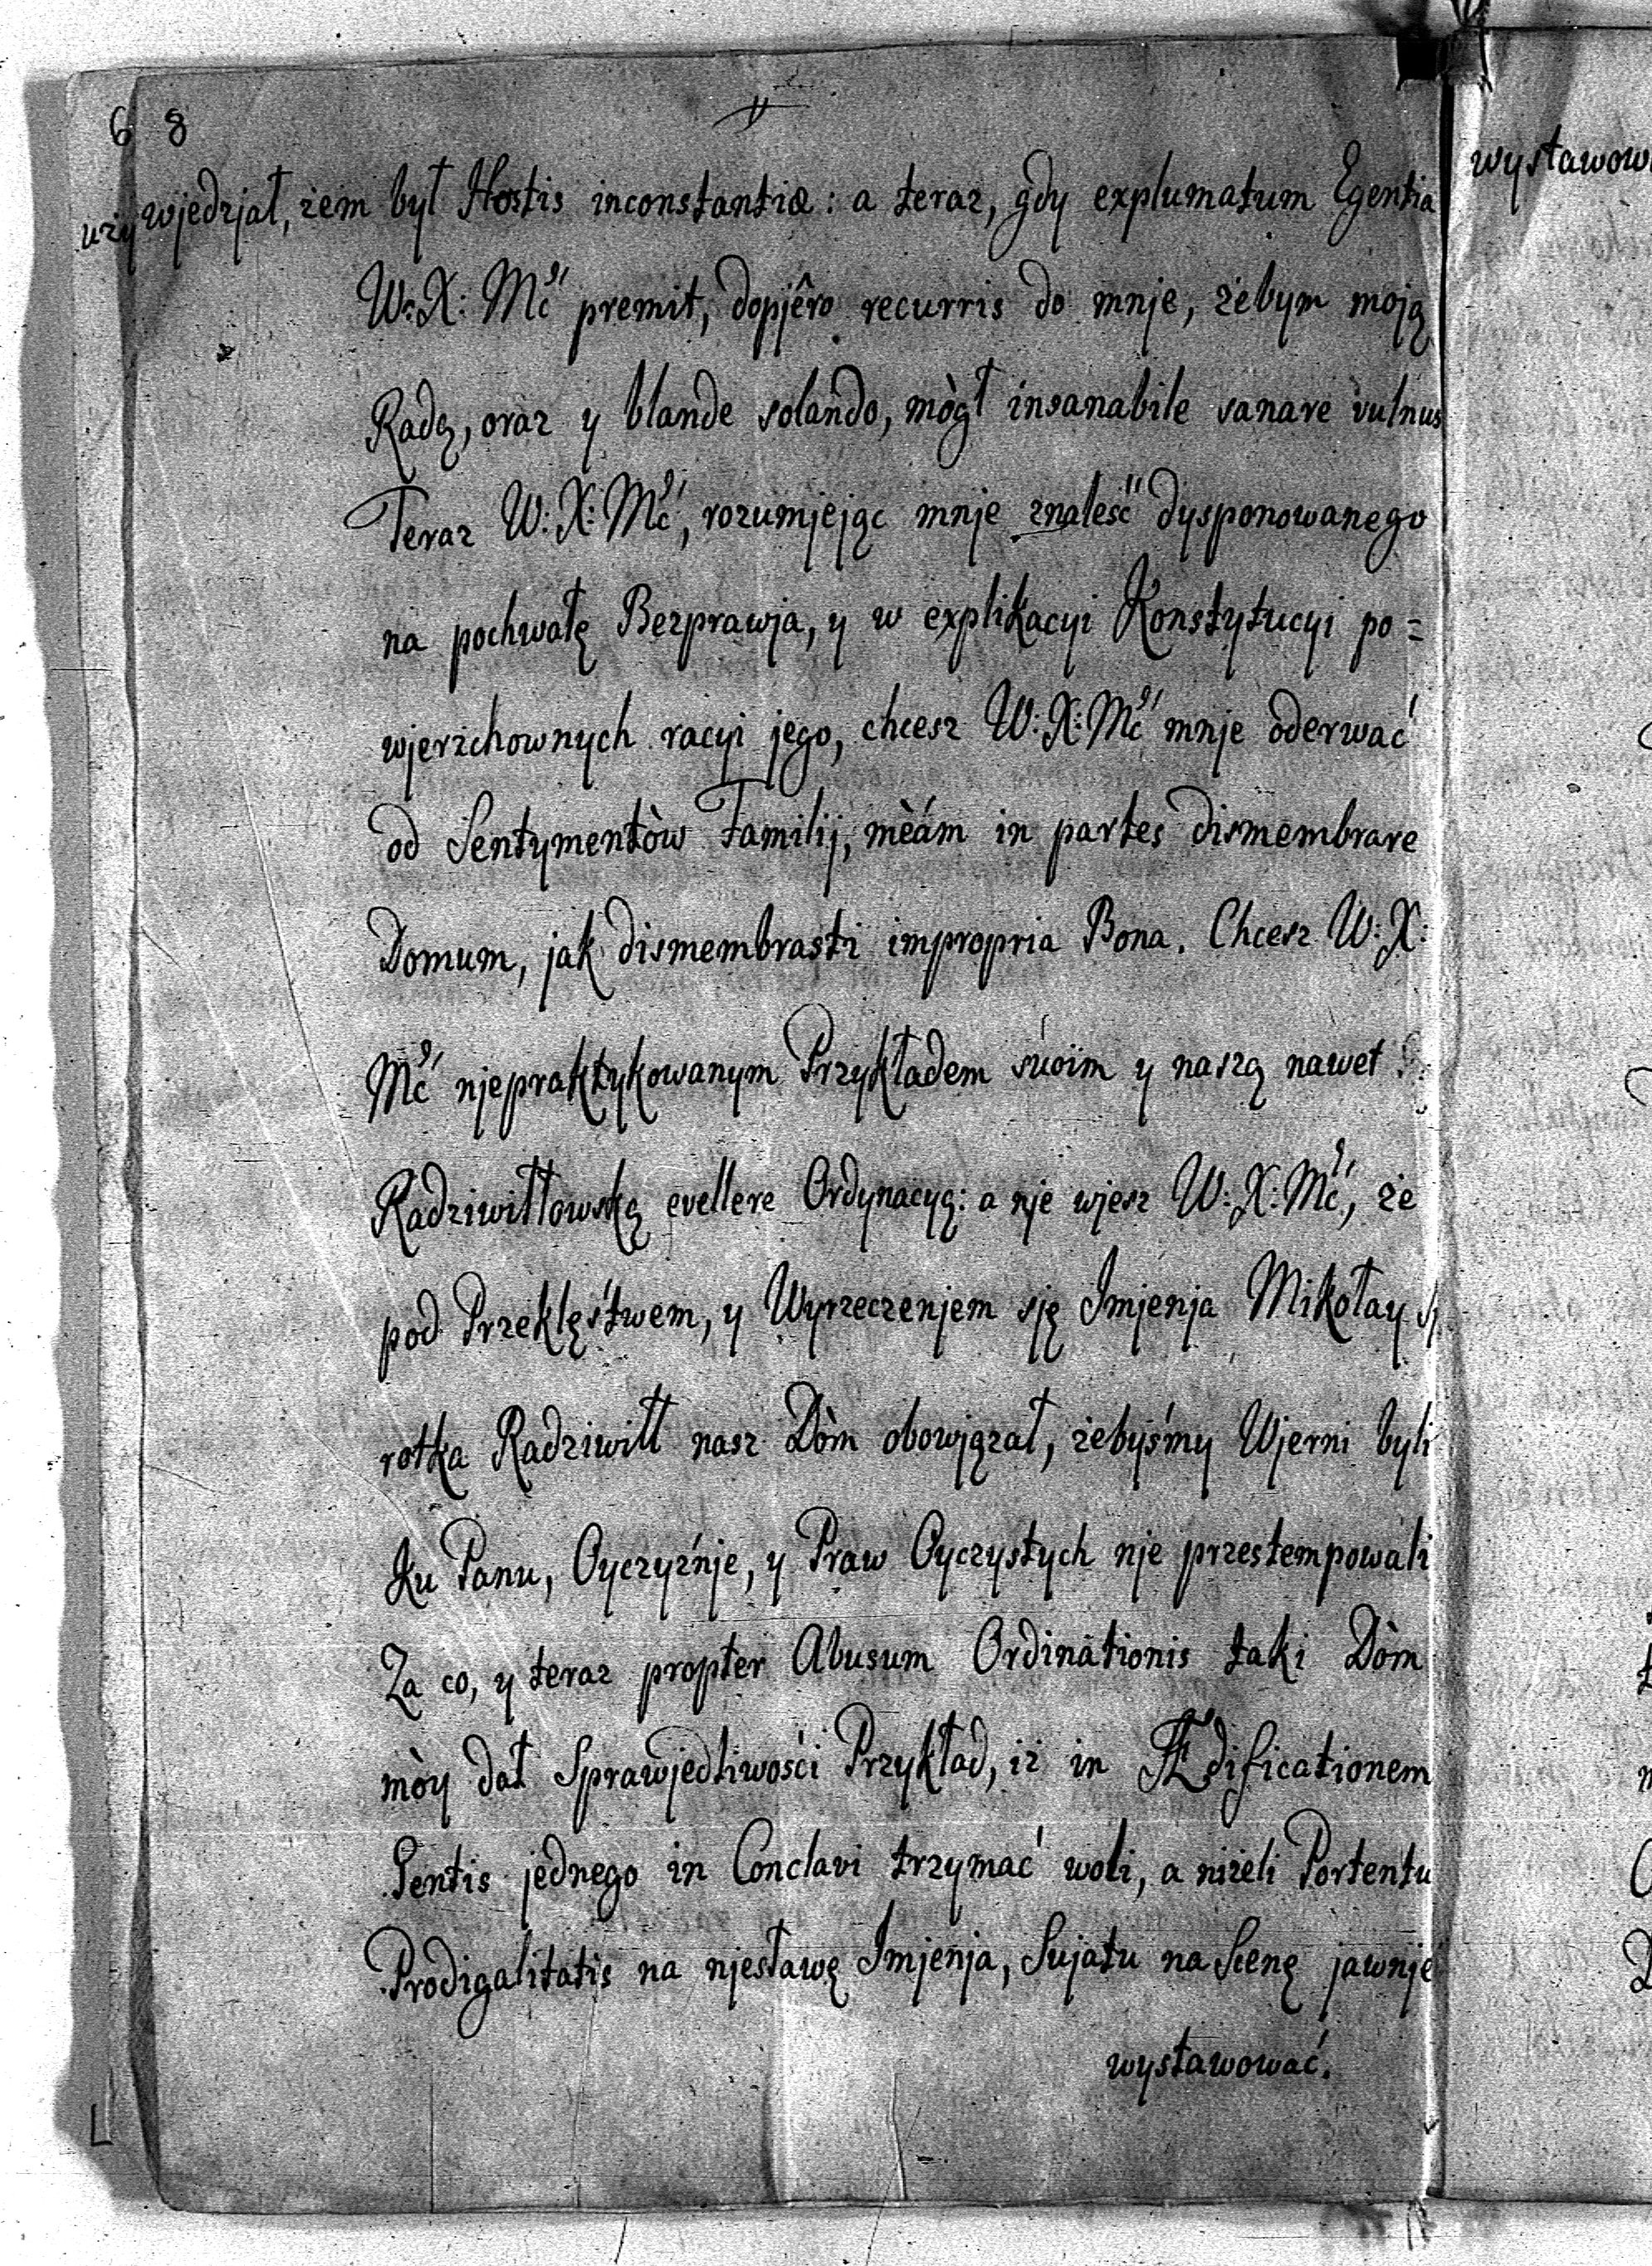 6 8
wjedzjał, żem był Hostis inconstantiæ: a teraz, gdy explumatum Egentia
W: X: Mć premit, dopjêro recurris do mnje, żebym moją
Radą, oraz y blande solando, mògł insanabile sanare vulnus
Teraz W: X: Mć, rozumjejąc mnje znaleść dysponowanego
na pochwałę Bezprawja, y w explikacyi Konstytucyi po=
wjerzchownych racyi jego, chcesz W: X: Mć mnje oderwać
od Sentymentòw Familij, mèám in partes dismembrare
Domum, jak dismembrasti impropria Bona. Chcesz W: X:
Mć njepraktykowanym Przykładem swoim y naszą nawet
Radziwiłłowską evellere Ordynacyą: a nje wjesz W: X: Mć, że
pod Przeklęstwem, y Wyrzeczenjem sję Imjenja Mikołay
rotka Radziwiłł nasz Dòm obowjązał, żebyśmy Wjerni byli
Ku Panu, Oyczyźnje, y Praw Oyczystych nje przestempowali
Za co, y teraz propter Abusum Ordinationis taki Dòm
mòy dał Sprawjedliwości Przykład, iż in Ædificationem
Gentis jednego in Conclavi trzymać woli, a niżeli Portentu
Prodigalitatis na njesławę Imjenja, Sujatu na Scenę jawnje
wystawować.
wystawow